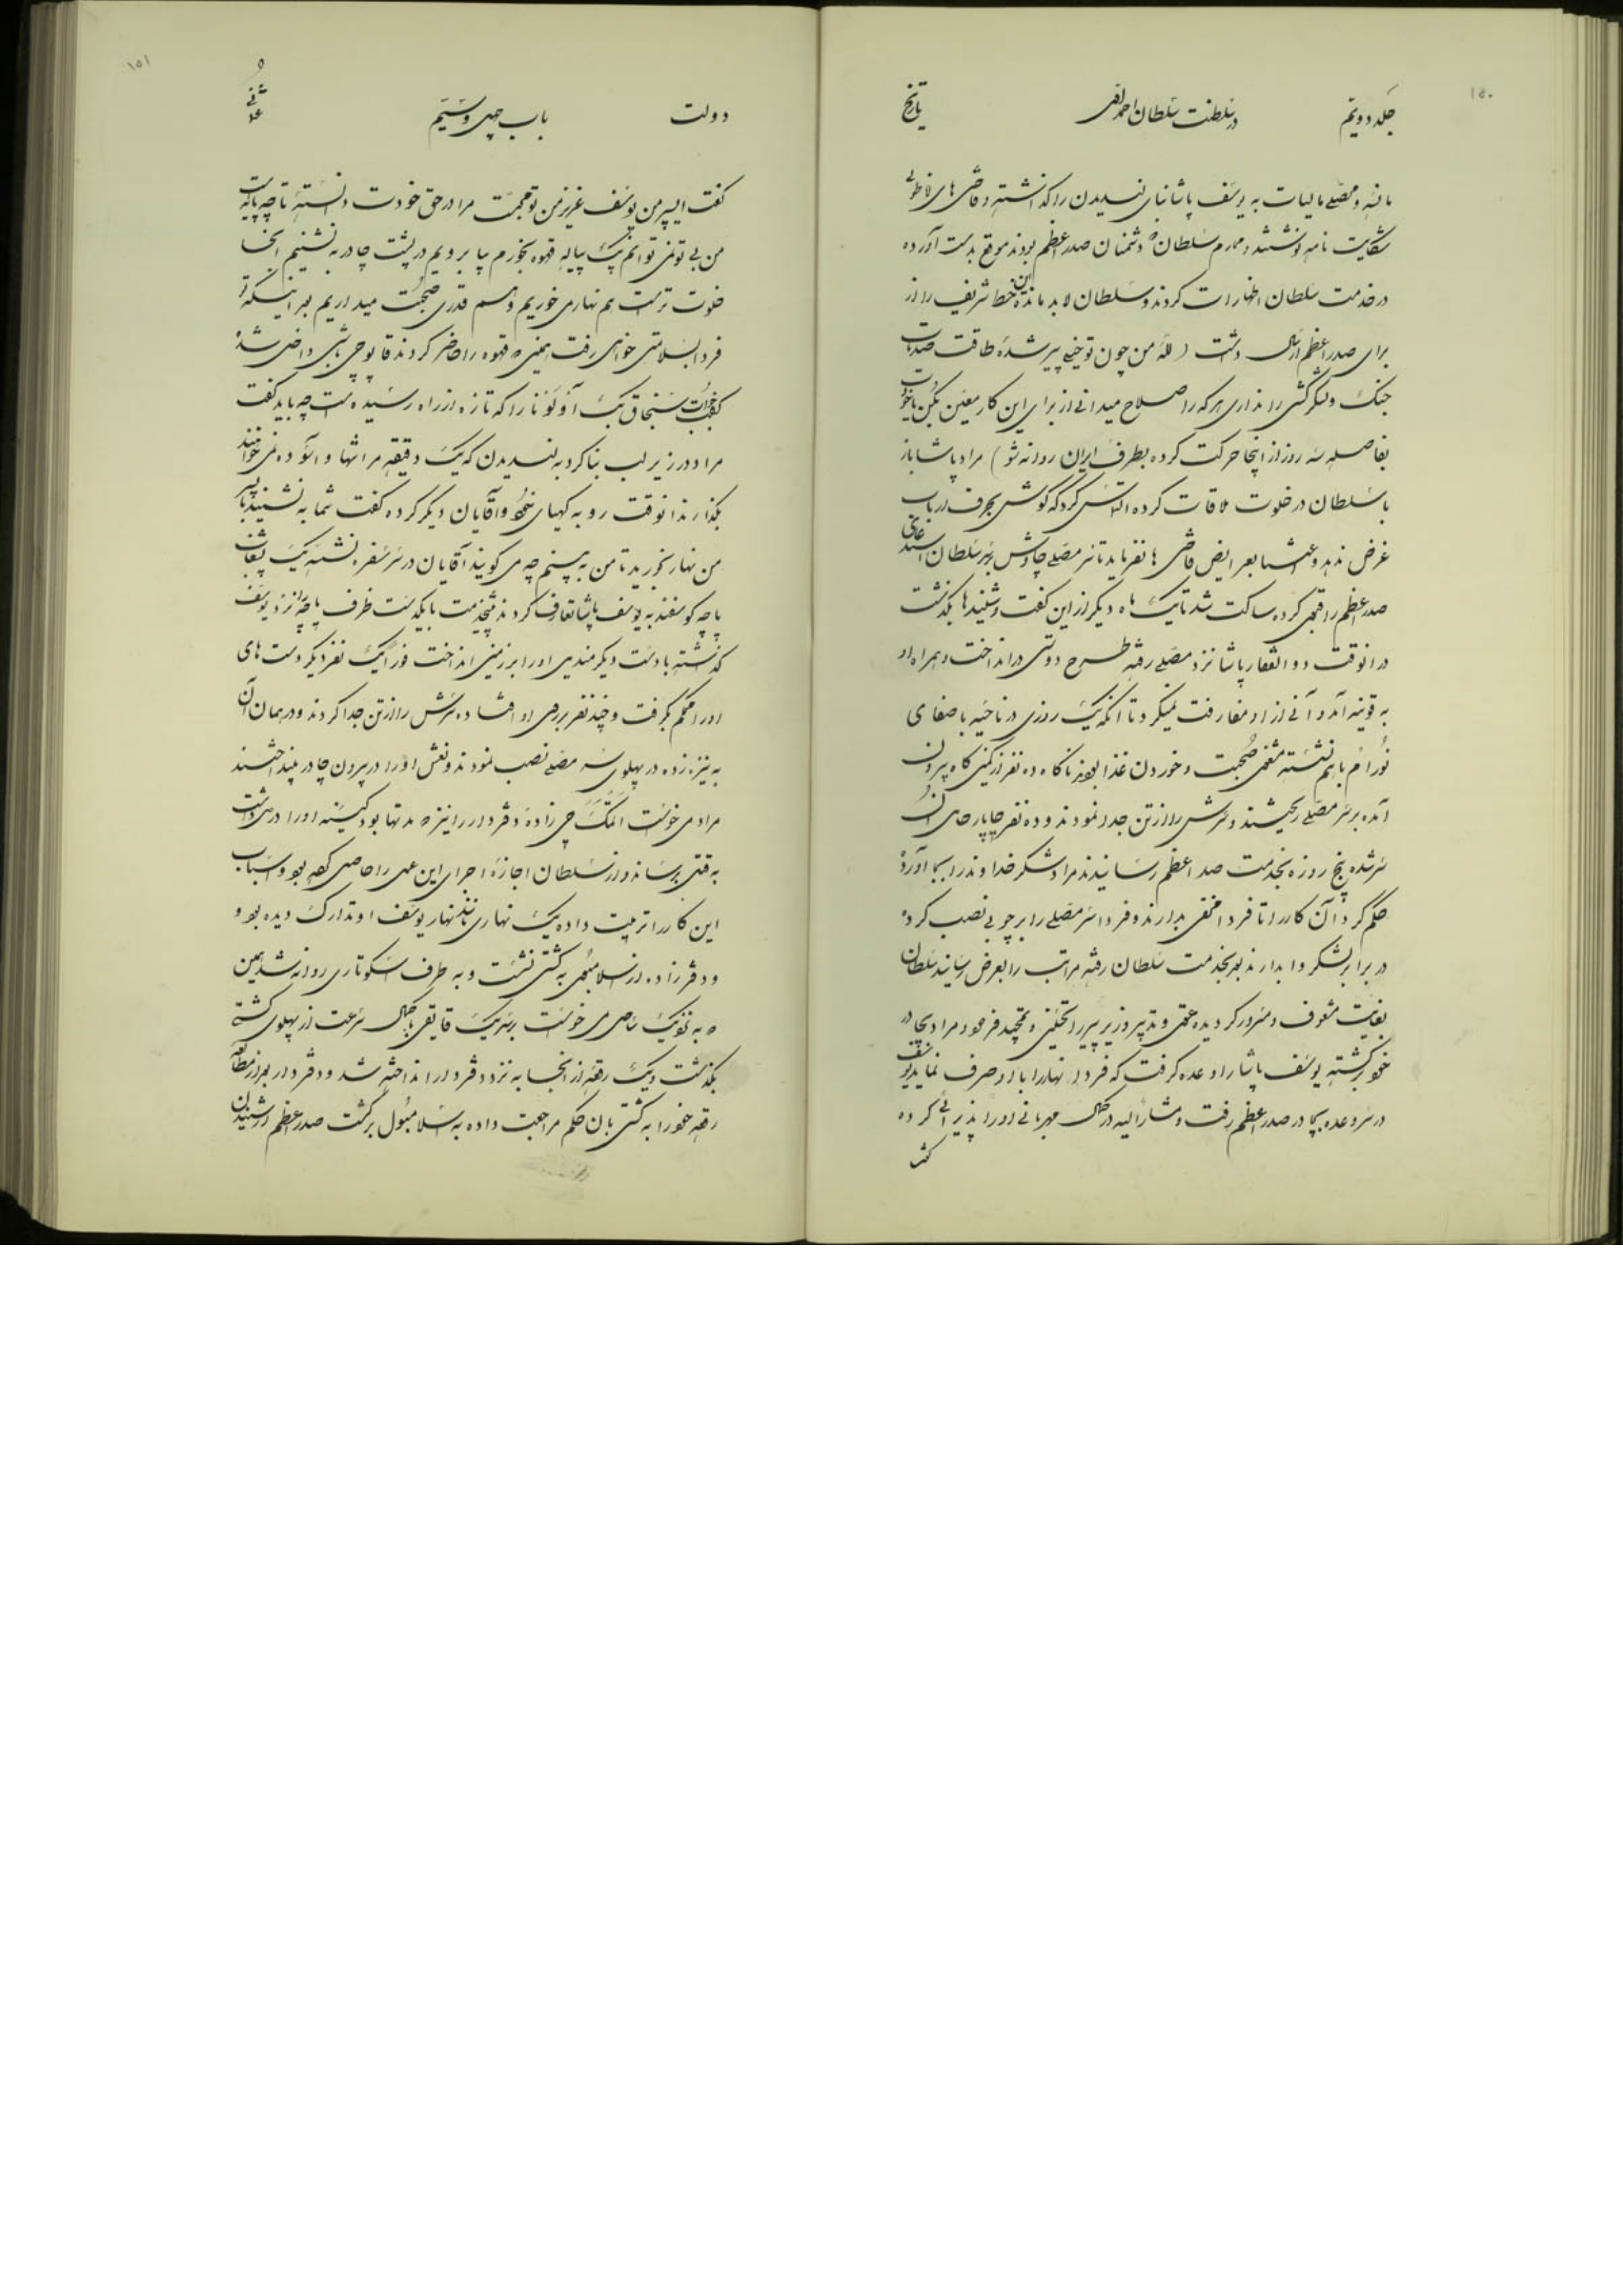 ۱۵۰
جلد دویم در سلطنت سلطان احمد تاریخ
مانند و مصلی مالیات به یوسف پاشا بنای لندیدن را گذاشته و قاضی های اناطولی
شکایت نامه نوشتند و محارم سلطان که دشمنان صدر اعظم بودند موقع بدست آورده
در خدمت سلطان اظهارات کردند و سلطان لابد مانده این خط شریف را از
برای صدر اعظم ارسال داشت (لله من چون تو خیلی پیر شده طاقت صدمات
جنگ و لشکر کشی را نداری هر که را صلاح میدانی از برای این کار معین بکن با خودت
بفاصله سه روز از اینجا حرکت کرده بطرف ایران روانه شو) مراد پاشا باز
با سلطان در خلوت ملاقات کرده التماس کرد که گوش بحرف ارباب
غرض ندهد و اعتنا بعرایض قاضی ها نفرماید تا سر مصلی چاوش بر سلطان استدعای
صدر اعظم را قبول کرده ساکت شد تا یک ماه دیگر از این گفت و شنیدها بگذشت
در انوقت ذوالفقار پاشا نزد مصلی رفته طرح دوستی در انداخت و همراه او
به قونیه آمد و آنی از او مفارقت نمیکرد تا آنکه یک روزی در ناحیه با صفای
با هم نشسته مشغول صحبت و خوردن غذا بودند ناگاه ده نفر از کمین گاه بیرون
آمده بر سر مصلی ریختند و سرش را از تن جدا نمودند و ده نفر چاپار حامل آن
سر شده پنج روزه بخدمت صدر اعظم رسانیدند مراد شکر خداوند را بجا آورد
حکم کرد آن کار را تا فردا مخفی بدارند و فردا سر مصلی را بر چوبی نصب کرده
در برابر لشکر وا بدارند بعد بخدمت سلطان رفته مراتب را بعرض رسانید سلطان
بغایت مشعوف و مسرور گردیده عقل و تدبیر وزیر پیر را تحسین و تمجید فرمود مراد بچادر
خود برگشته یوسف پاشا را وعده گرفت که فردا نهار را با او صرف نماید یوسف
در سر وعده بچادر صدر اعظم رفت و مشارالیه در کمال مهربانی او را پذیرائی کرده
گفت
۱۵۱
دولت باب چهل و سیم عثمانی
گفت ای پسر من یوسف عزیز من تو محبت مرا در حق خودت دانسته تا چه پایه است
من بی تو نمی توانم یک پیاله قهوه بخورم بیا برویم در پشت چادر بنشینیم آنجا
خلوت تر است هم نهاری خوریم و هم قدری صحبت میداریم بعد از اینکه تو
فردا بسلامتی خواهی رفت همینکه قهوه را حاضر کردند قاپوچی باشی داخل شده
گفت سنجاق بیک را که تازه از راه رسیده است چه باید گفت
مراد در زیر لب بنا کرد به لندیدن که یک دقیقه مرا تنها و آسوده نمی خواهند
بگذارند انوقت رو به کهیای خود و آقایان دیگر کرده گفت شما بنشینید با پسر
من نهار بخورید تا من به بینم چه می گویند آقایان در سر سفره نشسته یک بشقاب
پاچه گوسفند به یوسف پاشا تعارف کردند پیشخدمت با یکدست ظرف پاچه را نزد یوسف
گذاشته با دست دیگر مندیل او را بر زمین انداخت فوراً یک نفر دیگر دست های
او را محکم گرفت و چند نفر بر روی او افتاده سرش را از تن جدا کردند و در همان آن
به نیزه زده در پهلوی سر مصلی نصب نمودند و نعش او را در بیرون چادر بینداختند
مراد می خواست اتمکچی زاده دفتردار را نیز که مدتها بود کینه او را در دل داشت
به قتل برساند و از سلطان اجازه اجرای این عمل را حاصل کرده بود و اسباب
این کار را ترتیب داده یک نهاری مانند نهار یوسف او تدارک دیده بود و
دفترزاده از اسلامبول به کشتی نشست و به طرف اسکوتاری روانه شد همین
که به نزدیک ساحل می خواست برسد یک قایقی بکمال سرعت از پهلوی کشتی
بگذشت و یک رقعه از آنجا به نزد دفتردار انداخته شد و دفتردار بعد از مطالعه
رقعه خود را به کشتی بان حکم مراجعت داده به اسلامبول برگشت صدر اعظم از شنیدن